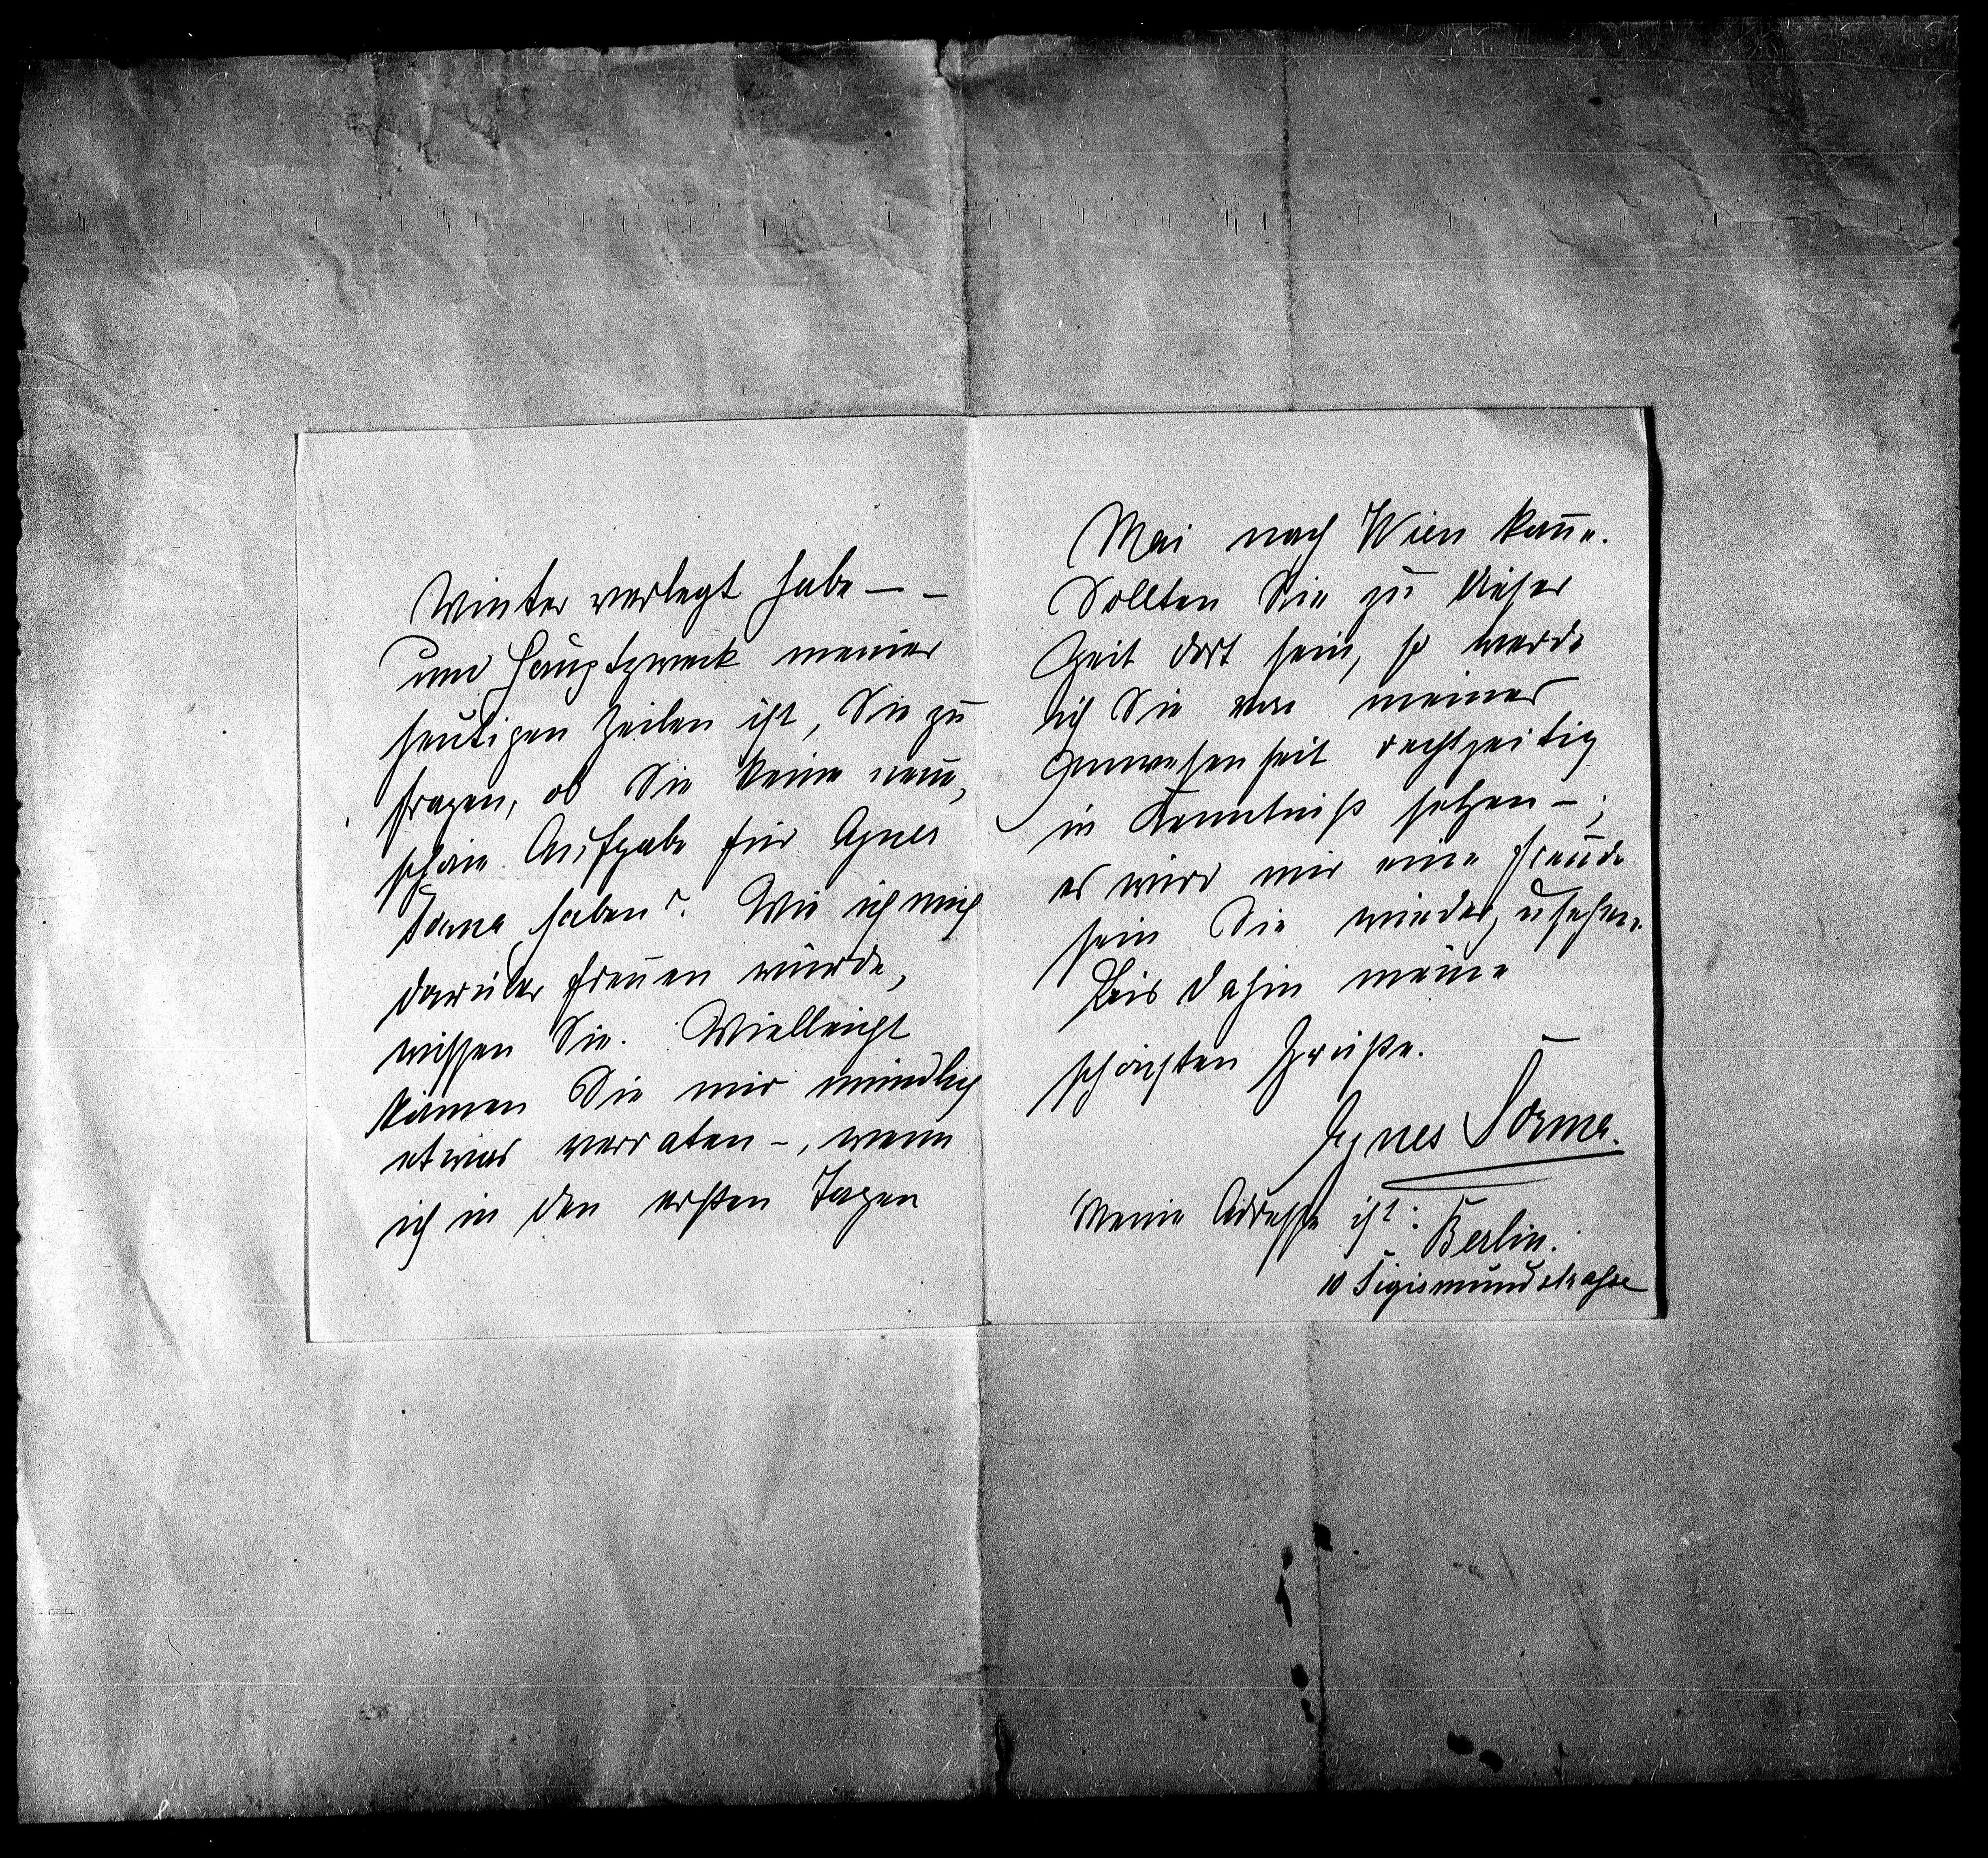 Winter verlegt habe – –
und Hauptzweck meiner
heutigen Zeilen ist, Sie zu
fragen, ob Sie keine neue,
schöne Aufgabe für Agnes
Sorma haben? Wie ich mich
darüber freuen würde,
wissen Sie. Vielleicht
können Sie mir mündlich
etwas verraten –, wenn
ich in den ersten Tagen
Mai nach Wien kom̄e.
Sollten Sie zu dieser
Zeit dort sein, so werde
ich Sie von meiner
Anwesenheit rechtzeitig
in Kenntniß setzen –;
es wird mir eine Freude
sein Sie wiederzusehen.
Bis dahin meine
schönsten Grüße.
Agnes Sorma.
Meine Adresse ist: Berlin.
10 Sigismundstrasse